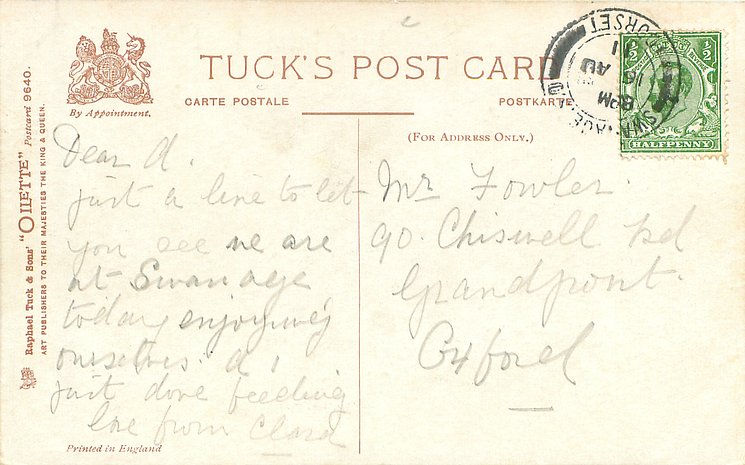 TUCK'S POST CARD
CARTE POSTALE
POSTKARTE
By Appointment.
(FOR ADDRESS ONLY.)
Raphael Tuck & Sons' "OILETTE" Postcard 9640.
ART PUBLISHERS TO THEIR MAJESTIES THE KING & QUEEN.
SWANAGE
DORSET
8 PM
AU
1
½ ½
HALFPENNY
Dear A.
just a line to let
you see we are
at Swanage
today enjoying
ourselves.
just done feeding
love from Clara
Mr Fowler.
90. Chiswell Rd
Grandpont.
Oxford
Printed in England